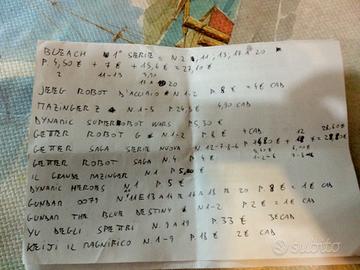 BLEACH 1° SERIE = N.2, 11, 13, 17 A 20
P. 4,50 € + 7 € + 15,6 € = 27,10 €
2 11-13
JEEG ROBOT D'ACCIAIO N 1-2 P. 8 € = 4€ CAD
MAZINGER Z N 1-5 P 24,5 € 4,90 CAD
DYNAMIC SUPERROBOT WARS P. 5,30 €
GETTER ROBOT G N 1-2 P 8 € 4 CAD
GETTER SAGA SERIE NUOVA N.
GETTER ROBOT SAGA N 4 P 4 €
IL GRANDE MAZINGER N 1 P
DYNAMIC HEROES N 1 P 5 €
GUNDAM 0079 N 11 E 13 A 14 E 16 A 18 E 20 P. 8 = 1€ CAD
GUNDAM THE BLUE DESTINY N 1-2 P 2 € = 1€ CAD
YU DEGLI SPETTRI N 9 A 19 P. 33 € 3€ CAD
KEIJI IL MAGNIFICO N. 1-9 P 18 € 2€ CAD
subito